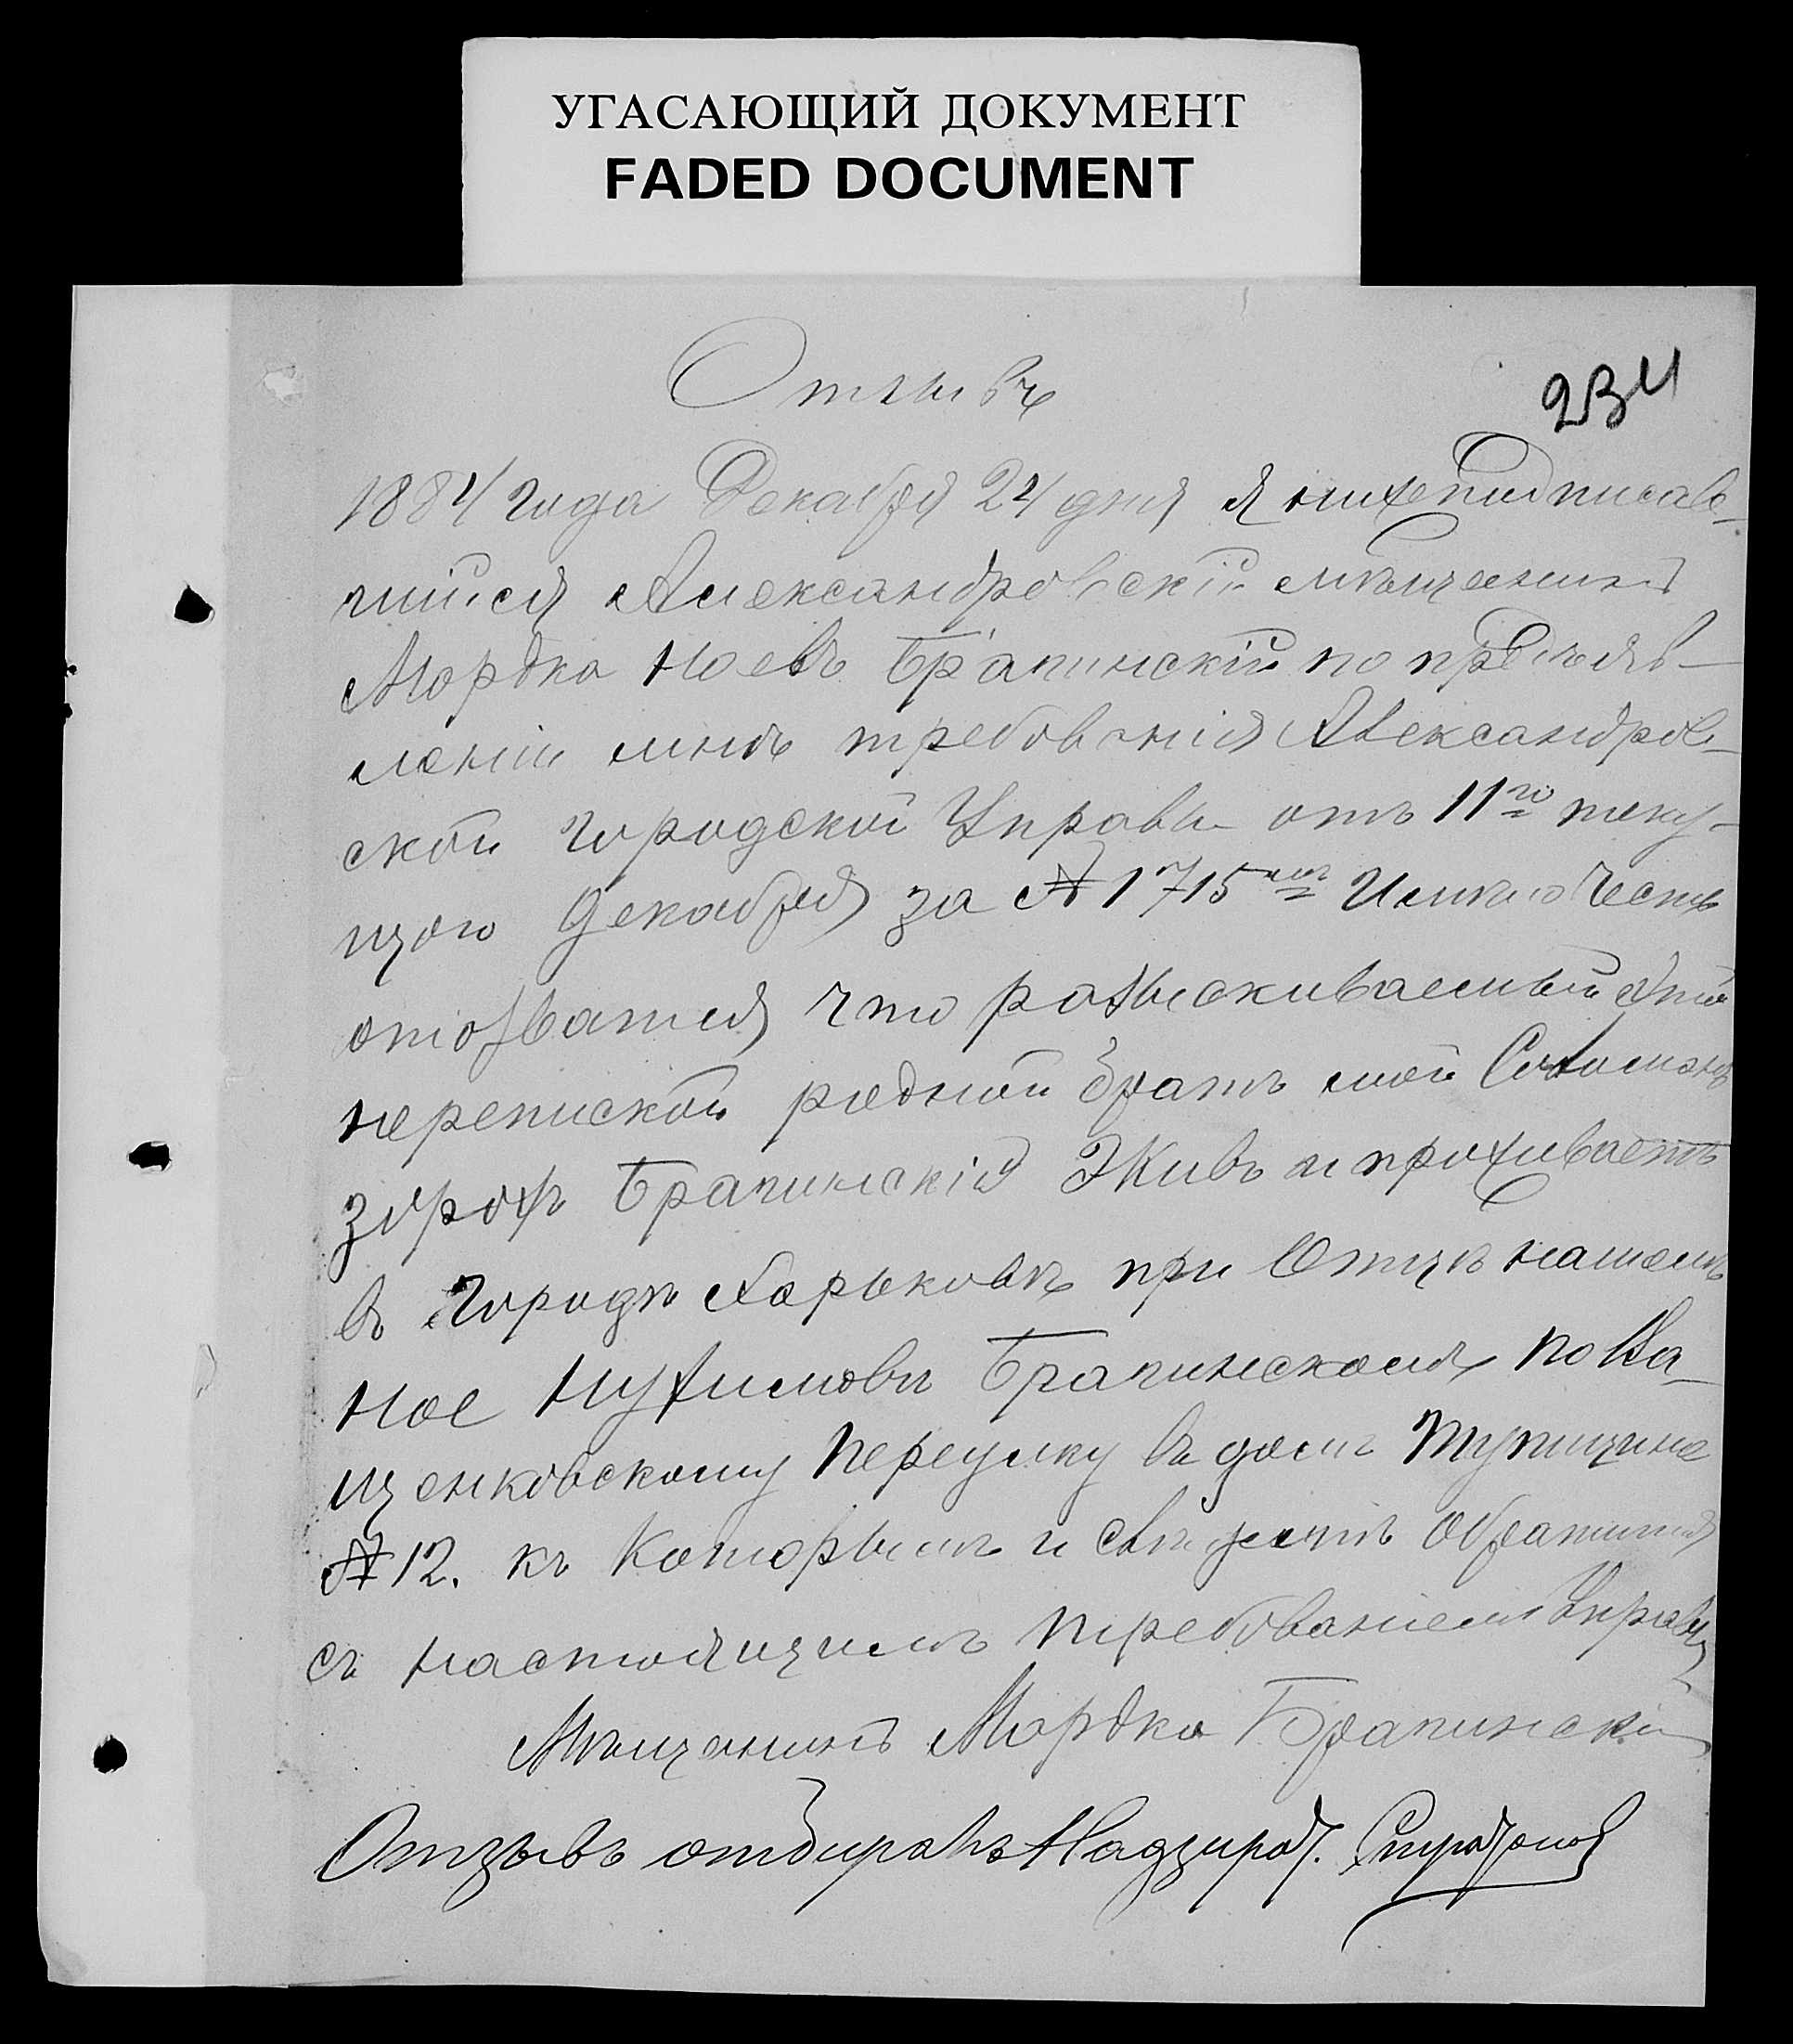 УГАСАЮЩИЙ ДОКУМЕНТ
FADED DOCUMENT
Отзывъ
234
1884 года Декабря 24 дня я нижеподписав-
шійся Александровскій мѣщанинъ
Мордко Ноевъ Брагинскій по предъяв-
леніи мнѣ требованія Александров-
ской Городской Управы отъ 11го теку-
щаго Декабря за № 1715 имѣю честь
отозватся что разыскиваемый этой
перепиской родной братъ мой Соломонъ
Брагинскій Живъ и проживаетъ
въ Городѣ Харьковѣ при Отцѣ нашемъ
Ное Нухимовѣ Брагинскомъ по Ва-
щенковскому Переулку въ домѣ
№ 12. къ Которымъ и слѣдуетъ обратится
съ настоящимъ требованіемъ Управы
Мѣщанинъ Мордко Брагинскій
Отзывъ отбиралъ Надзират.